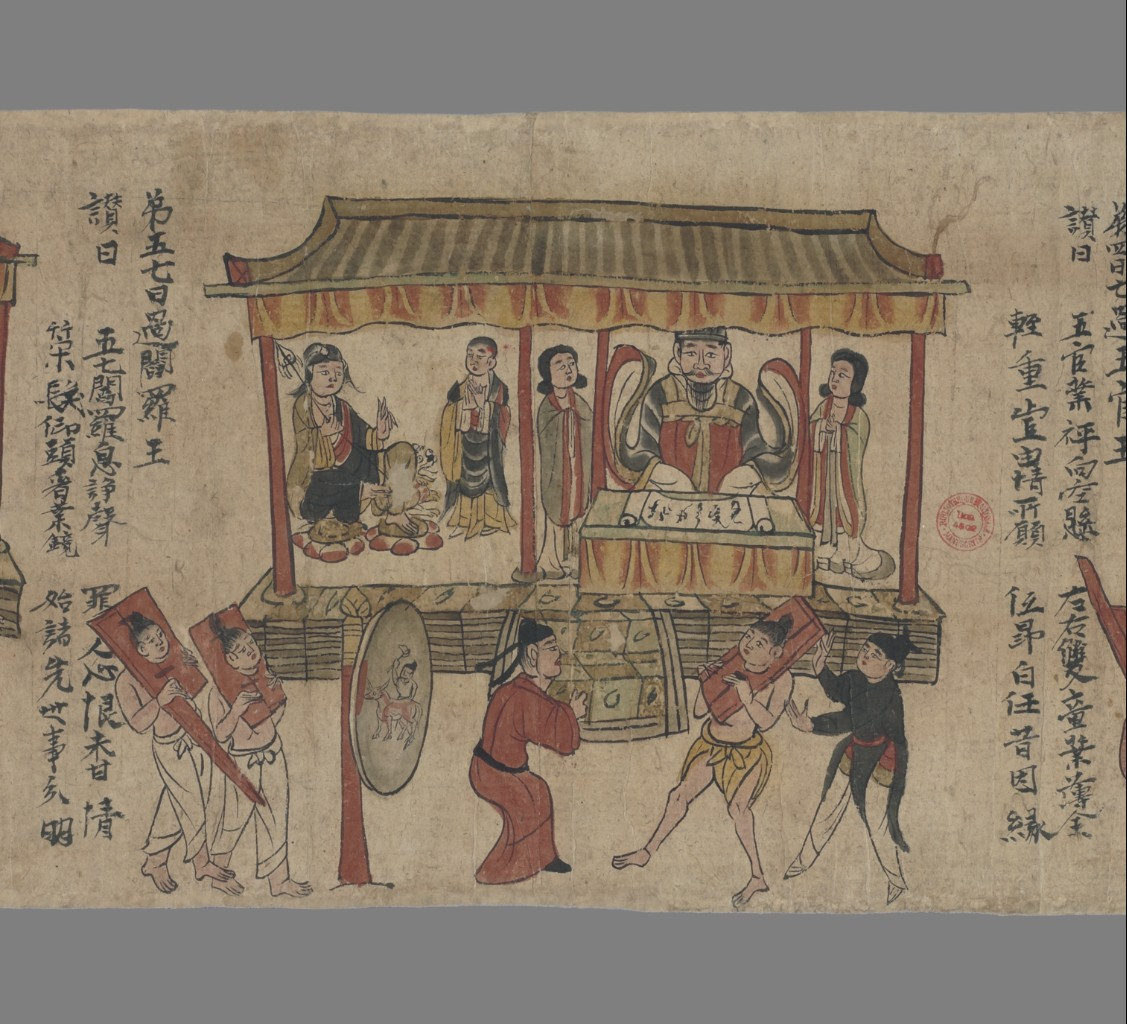 第四七日過五官王
讚曰 五官業秤向空懸 左右雙童業薄全
輕重豈由情所願 低昂自任昔因緣
第五七日過閻羅王
讚曰 五七閻羅息諍聲 罪人心恨未甘情
策髮仰頭看業鏡 始諸先世事分明